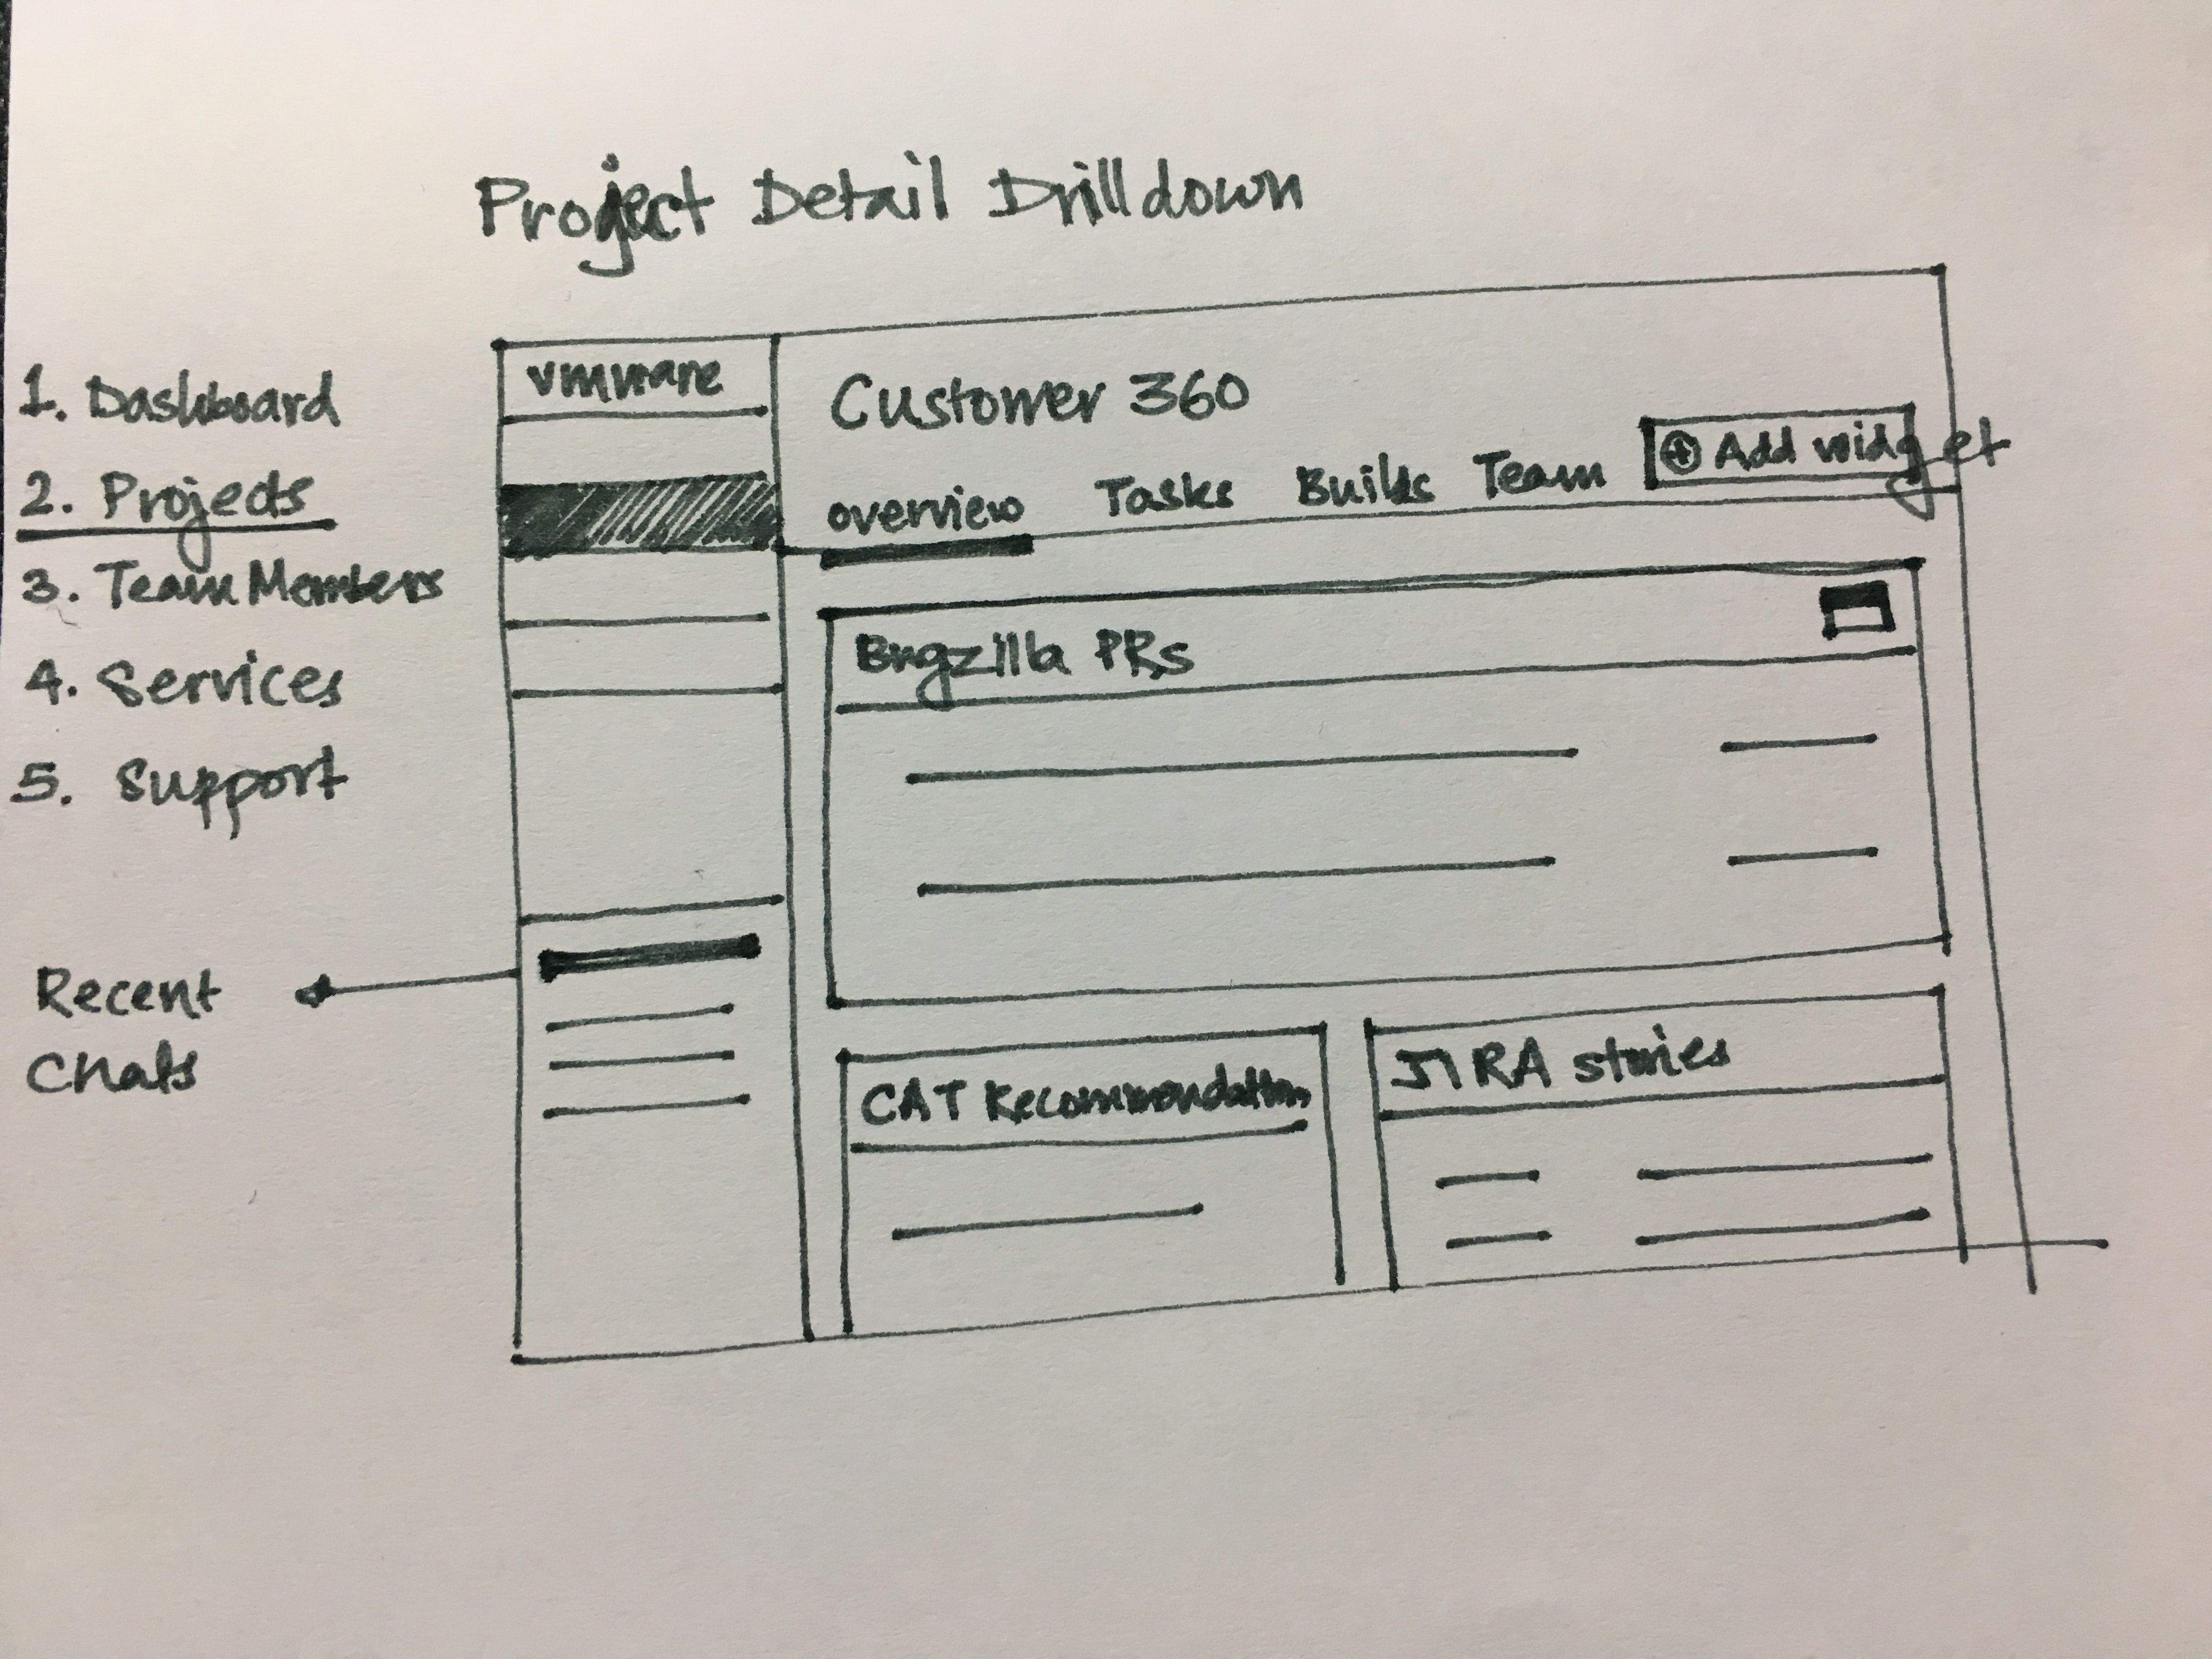 Project Detail Drilldown
1. Dashboard
2. Projects
3. Team Members
4. Services
5. Support
Recent
Chats
vmware
Customer 360
overview Tasks Builds Team + Add widget
Bugzilla PRs
CAT Recommendations
JIRA stories